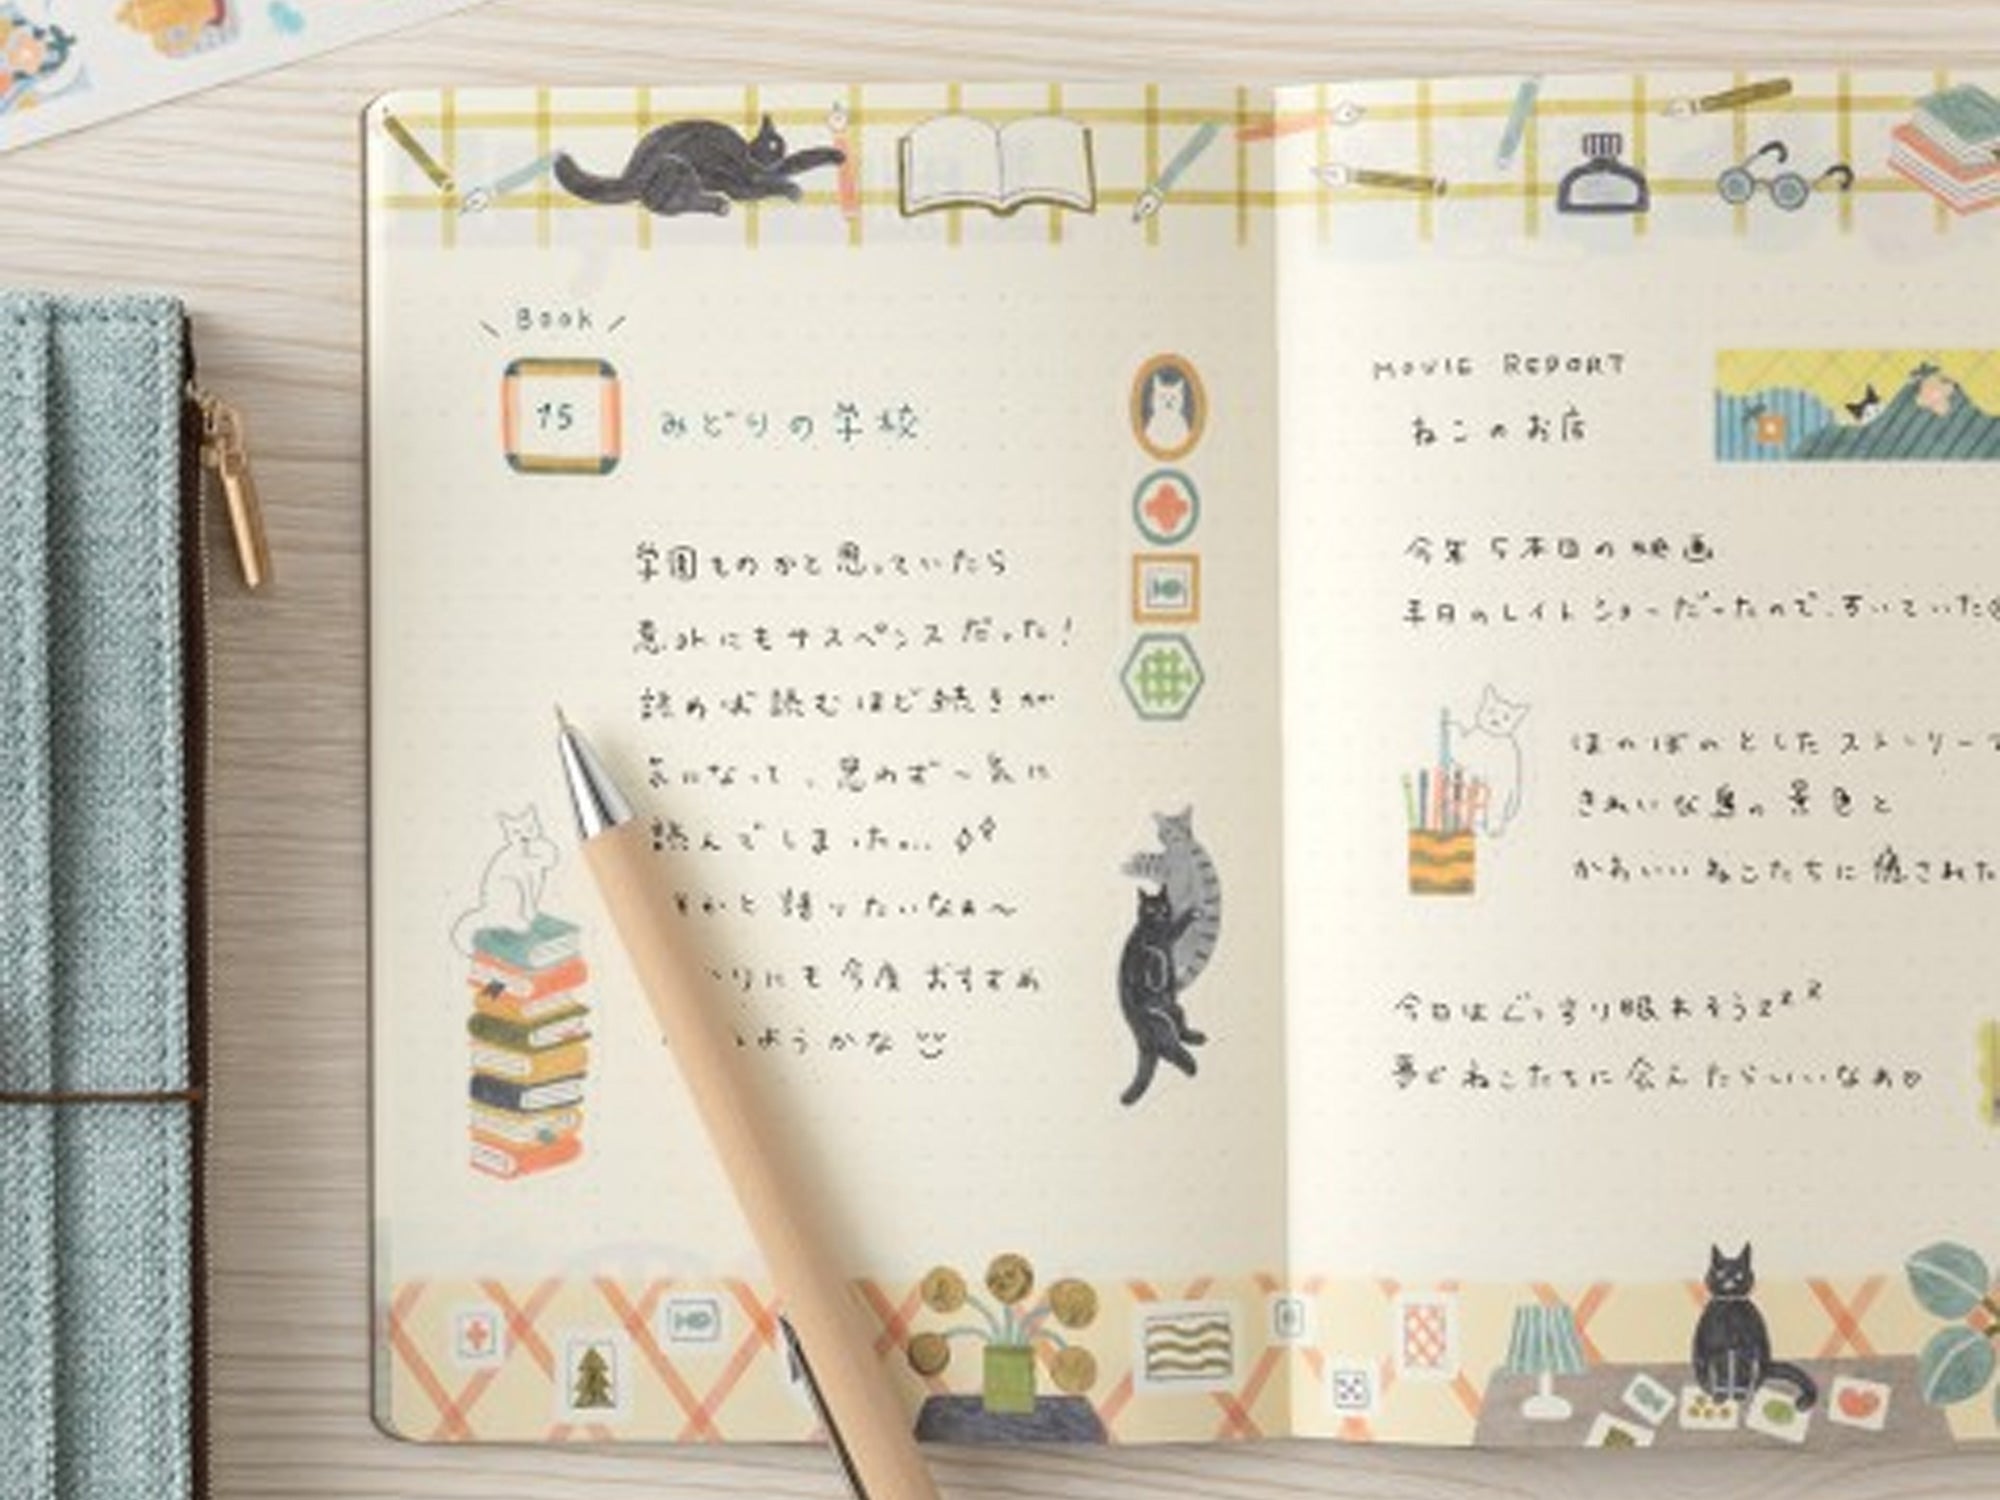 Book
15
みどりの学校
学園ものかと思っていたら
意外にもサスペンスだった!
読めば読むほど続きが
気になって、思わず〜気に
読んでしまった...
かと語りたいなぁ〜
りにも今度おすすめ
ようかな
MOVIE REPORT
ねこのお店
今年5本目の映画
平日のレイトショーだったので、すいていた
ほのぼのとしたストーリーで
きれいな島の景色と
かわいいねこたちに癒された
今日はぐっすり眠れそうzzz
夢でねこたちに会えたらいいなぁ♡